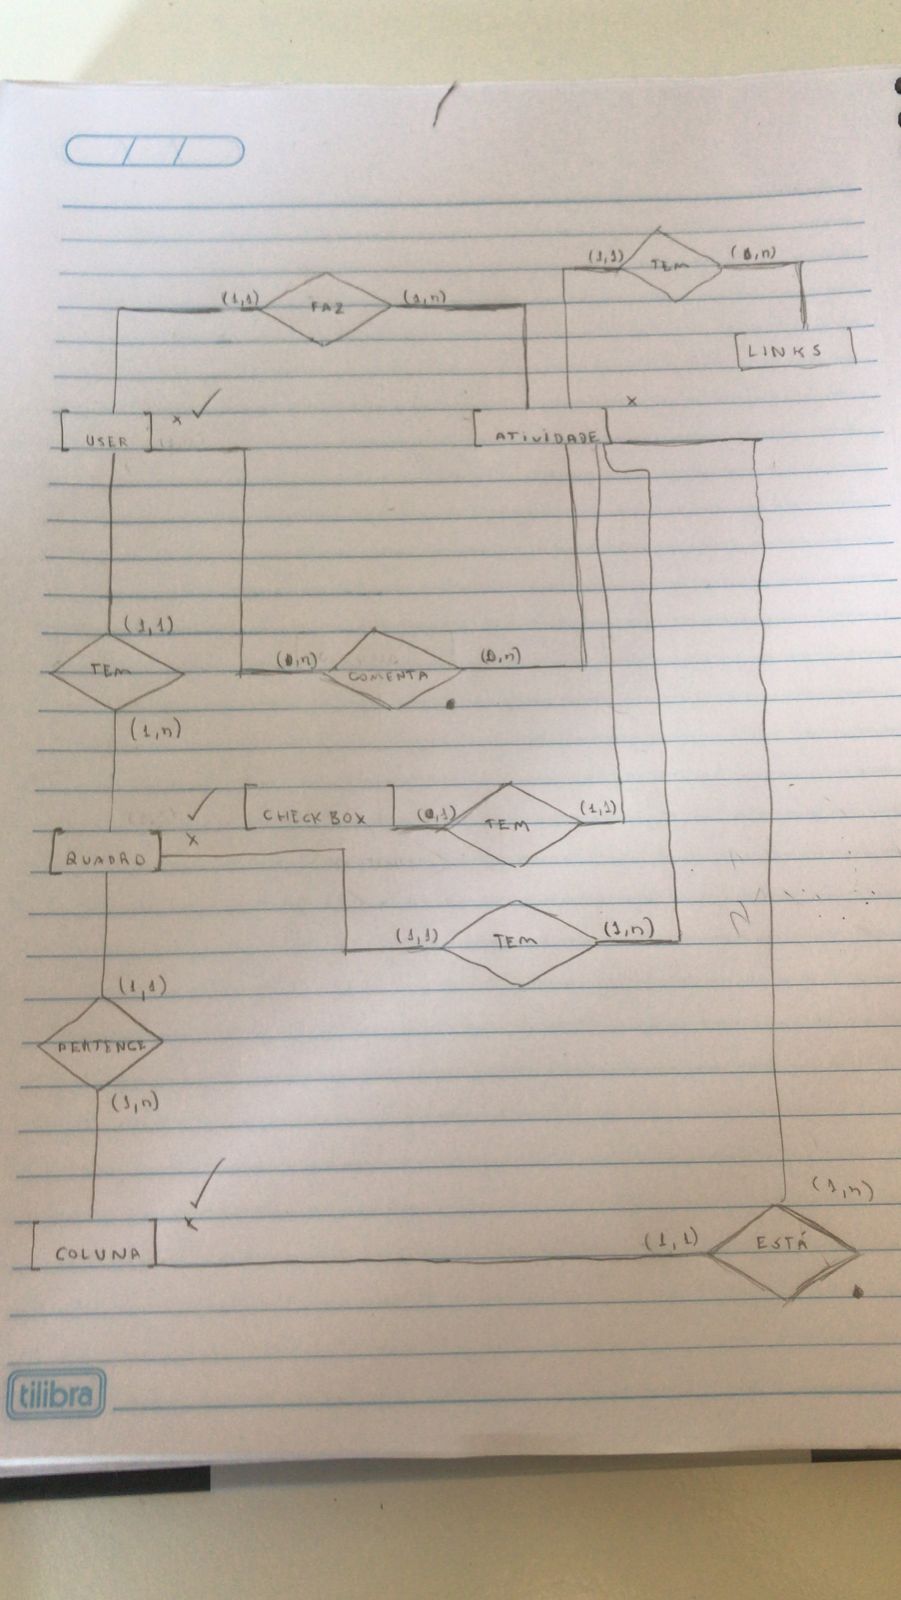 (1,1) TEM (0,n)
(1,1) FAZ (1,n)
LINKS
USER x
ATIVIDADE x
(1,1)
TEM
(0,n) COMENTA (0,n)
(1,n)
CHECKBOX (0,1) TEM (1,1)
QUADRO x
(1,1) TEM (1,n)
(1,1)
PERTENCE
(1,n)
(1,n)
COLUNA x
(1,1) ESTÁ
tilibra